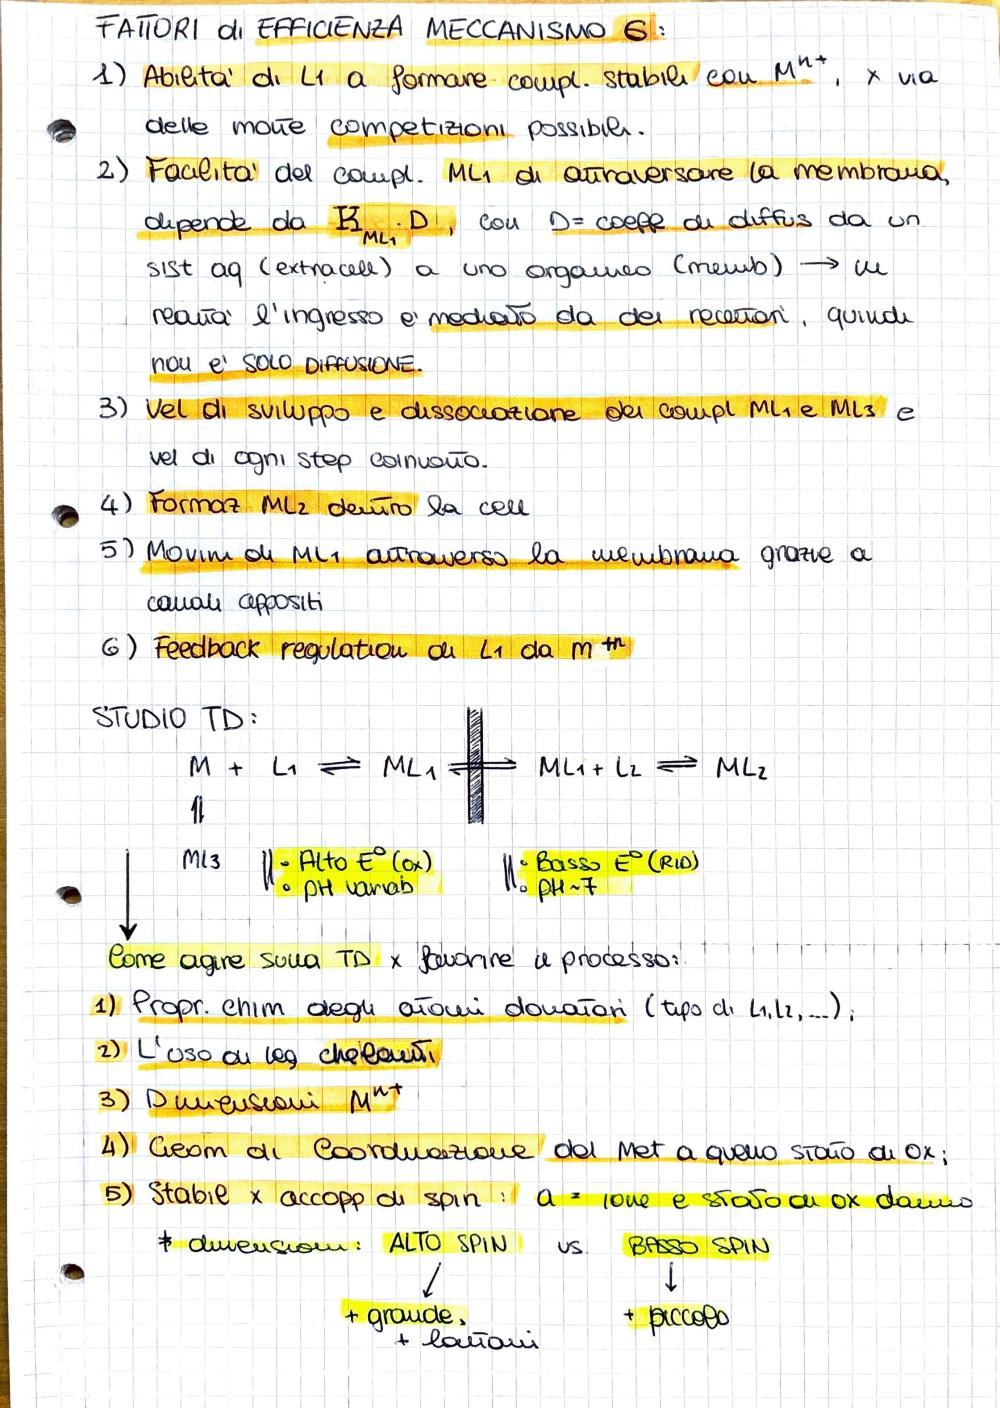 FATTORI di EFFICIENZA MECCANISMO 6:
1) Abilita' di L1 a formare compl. stabili con Mⁿ⁺, x via
delle molte competizioni possibili.
2) Facilita' del compl. ML1 di attraversare la membrana,
dipende da K_ML1 · D, con D= coeff di diffus da un
sist aq (extracell) a uno organico (memb) → in
realtà l'ingresso e' mediato da dei recettori, quindi
non e' SOLO DIFFUSIONE.
3) Vel di sviluppo e dissociazione dei compl ML1 e ML3 e
vel di ogni step coinvolto.
4) Formaz ML2 dentro la cell
5) Movim di ML1 attraverso la membrana grazie a
canali appositi
6) Feedback regulation di L1 da M⁺ⁿ
STUDIO TD:
M + L1 ⇌ ML1 ⇌ ML1 + L2 ⇌ ML2
⥮
ML3 || • Alto E° (ox) || • Basso E° (RID)
• pH variab • pH~7
Come agire sulla TD x favorire il processo:
1) Propr. chim degli atomi donatori (tipo di L1, L2, ...);
2) L'uso di leg chelanti
3) Dimensioni Mⁿ⁺
4) Geom di Coordinazione del Met a quello stato di ox;
5) Stabile x accopp di spin : a = ione e stato di ox danno
≠ dimensioni: ALTO SPIN vs. BASSO SPIN
↓ ↓
+ grande, + piccolo
+ lontani